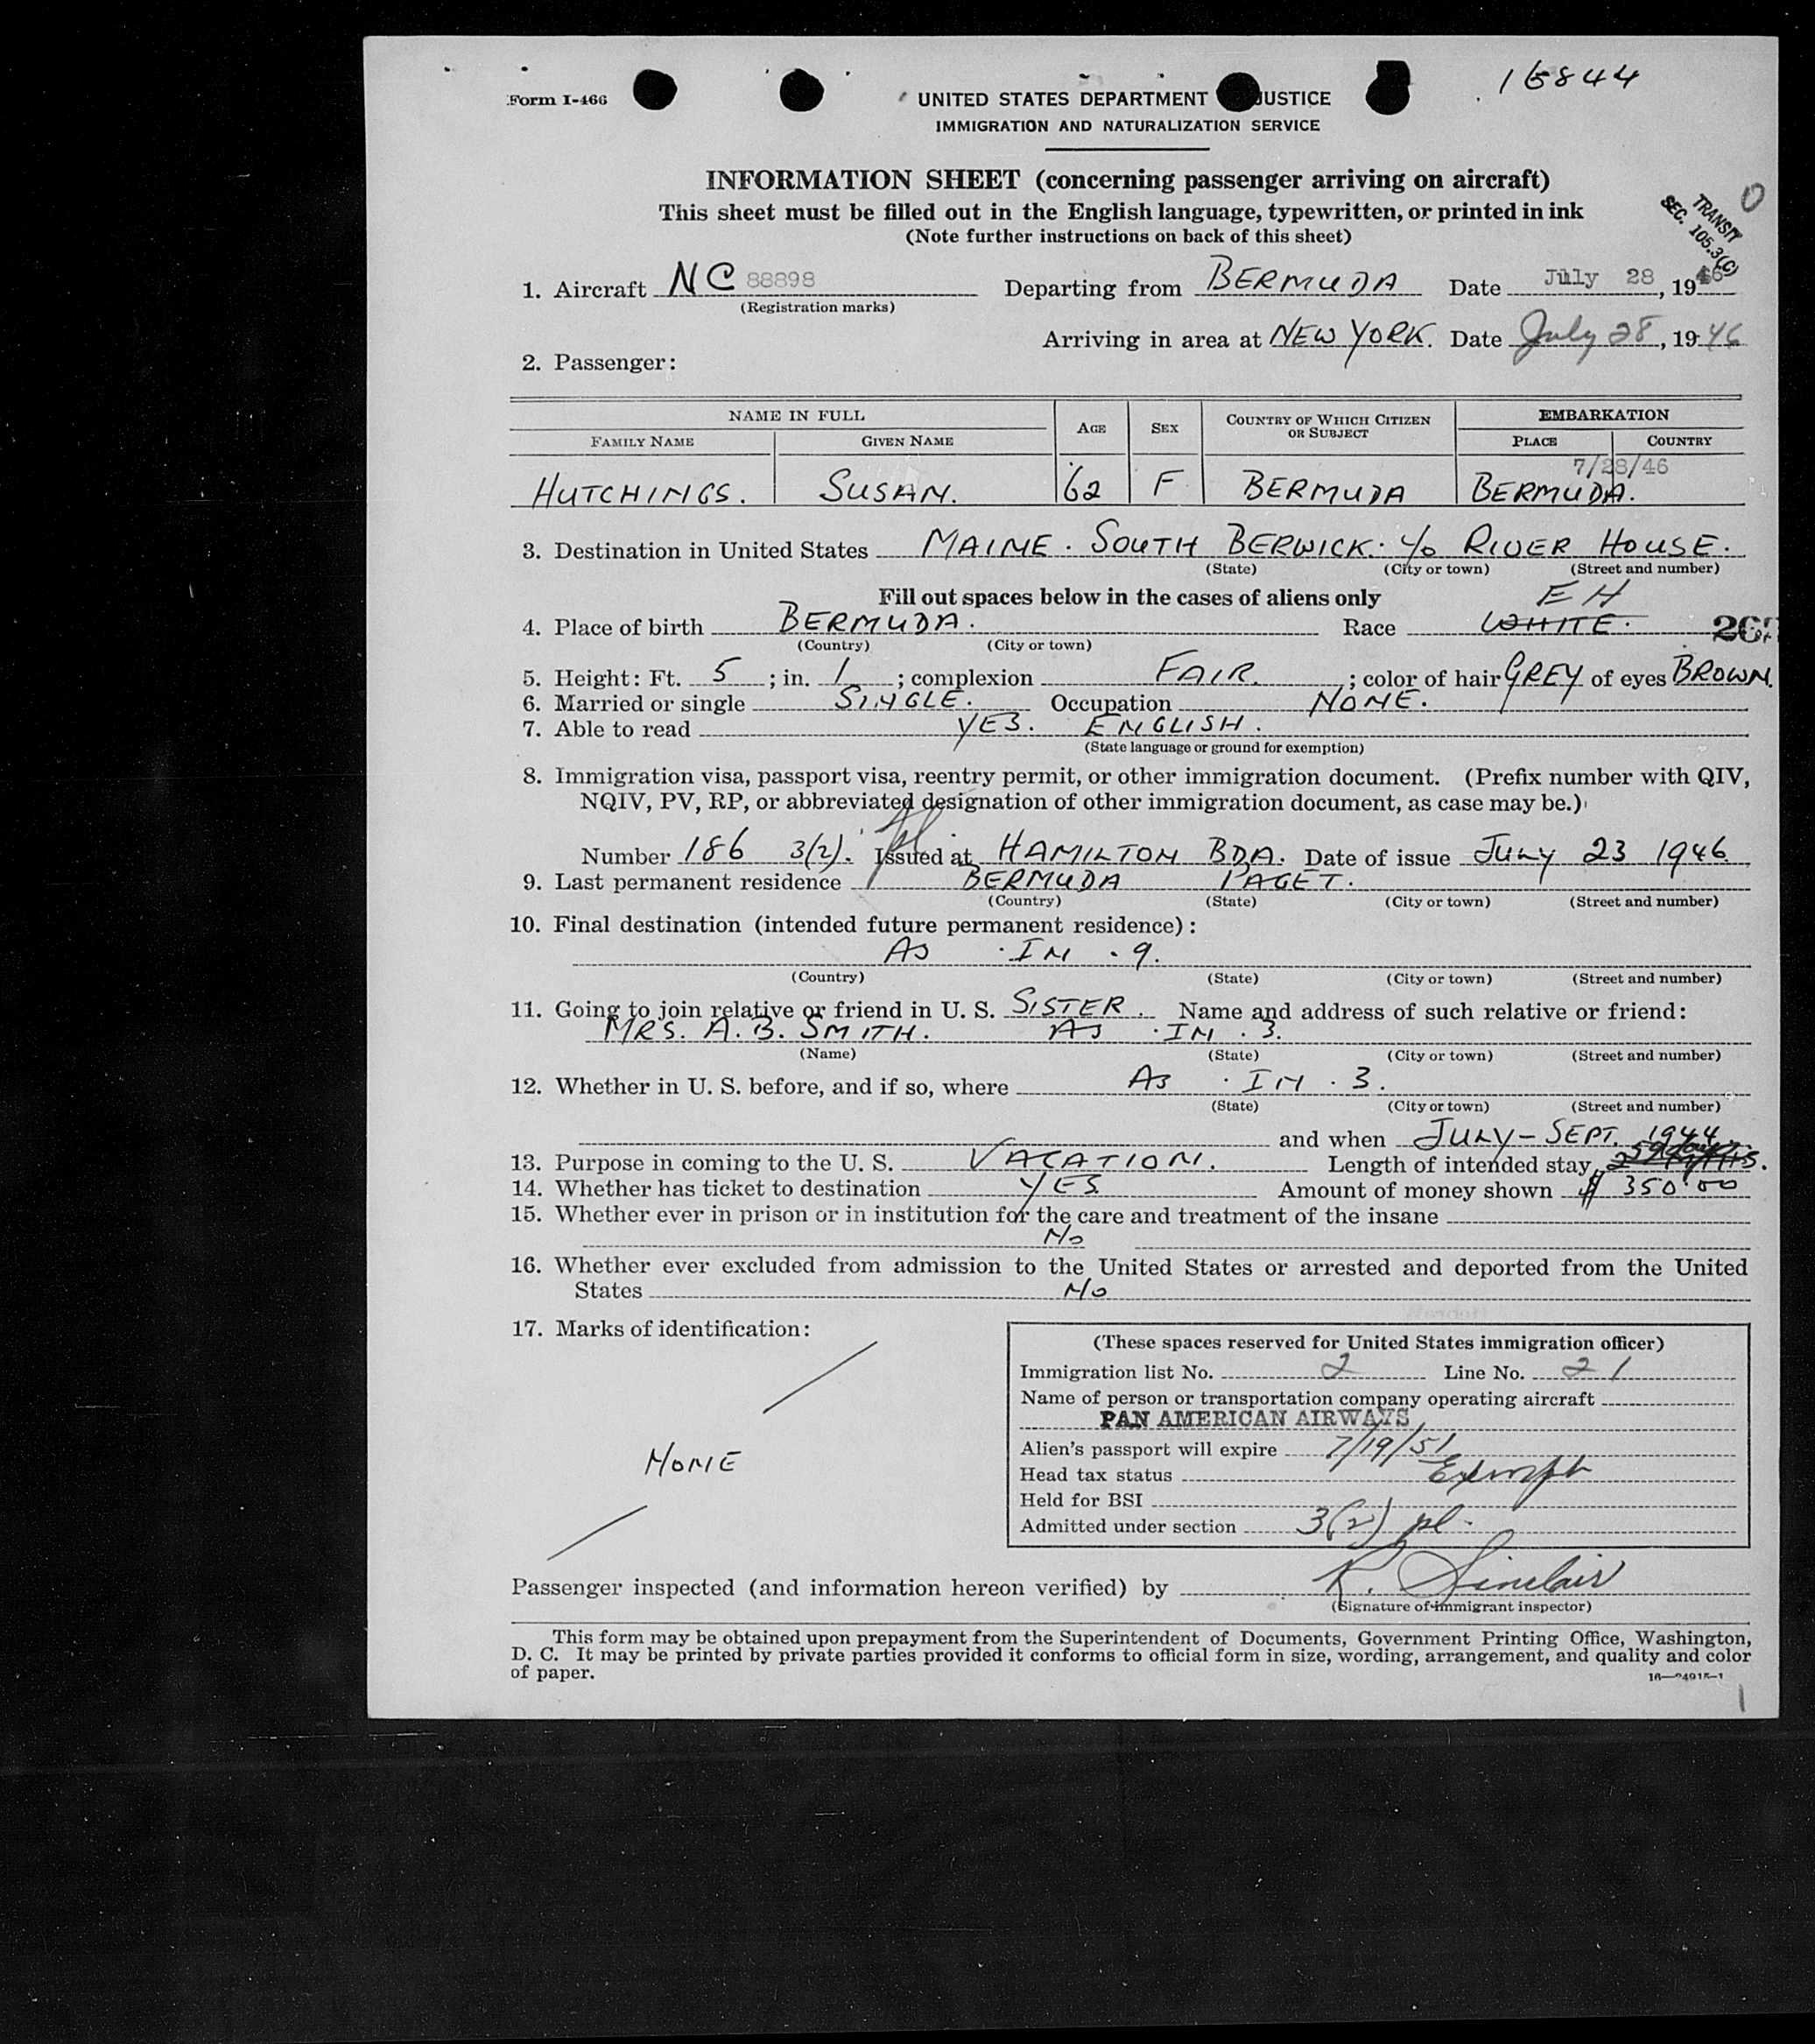 Form I-466
16844
UNITED STATES DEPARTMENT JUSTICE
IMMIGRATION AND NATURALIZATION SERVICE
INFORMATION SHEET (concerning passenger arriving on aircraft)
This sheet must be filled out in the English language, typewritten, or printed in ink
(Note further instructions on back of this sheet)
TRANSIT
SEC. 105.3(C)
0
1. Aircraft NC 88898 Departing from BERMUDA Date July 28, 1946
(Registration marks)
Arriving in area at NEW YORK. Date July 28, 1946
2. Passenger:
NAME IN FULL AGE SEX COUNTRY OF WHICH CITIZEN OR SUBJECT EMBARKATION
FAMILY NAME GIVEN NAME PLACE COUNTRY
7/28/46
HUTCHINGS. SUSAN. 62 F BERMUDA BERMUDA.
3. Destination in United States MAINE. SOUTH BERWICK. c/o RIVER HOUSE.
(State) (City or town) (Street and number)
Fill out spaces below in the cases of aliens only EH
4. Place of birth BERMUDA. Race WHITE.
(Country) (City or town)
5. Height: Ft. 5; in. 1; complexion FAIR.; color of hair GREY of eyes BROWN.
6. Married or single SINGLE. Occupation NONE.
7. Able to read YES. ENGLISH.
(State language or ground for exemption)
8. Immigration visa, passport visa, reentry permit, or other immigration document. (Prefix number with QIV,
NQIV, PV, RP, or abbreviated designation of other immigration document, as case may be.)
Number 186 3(2). Issued at HAMILTON BDA. Date of issue JULY 23 1946
9. Last permanent residence BERMUDA PAGET.
(Country) (State) (City or town) (Street and number)
10. Final destination (intended future permanent residence):
AS . IN . 9.
(Country) (State) (City or town) (Street and number)
11. Going to join relative or friend in U. S. SISTER. Name and address of such relative or friend:
MRS. A. B. SMITH. AS . IN . 3.
(Name) (State) (City or town) (Street and number)
12. Whether in U. S. before, and if so, where AS . IN . 3.
(State) (City or town) (Street and number)
and when JULY - SEPT. 1944
13. Purpose in coming to the U. S. VACATION. Length of intended stay
14. Whether has ticket to destination YES Amount of money shown $ 350.00
15. Whether ever in prison or in institution for the care and treatment of the insane
No
16. Whether ever excluded from admission to the United States or arrested and deported from the United
States No
17. Marks of identification:
NONE
(These spaces reserved for United States immigration officer)
Immigration list No. 2 Line No. 21
Name of person or transportation company operating aircraft
PAN AMERICAN AIRWAYS
Alien's passport will expire 7/19/51
Head tax status Exempt
Held for BSI
Admitted under section 3(2) pl.
Passenger inspected (and information hereon verified) by K. Sinclair
(Signature of immigrant inspector)
This form may be obtained upon prepayment from the Superintendent of Documents, Government Printing Office, Washington,
D. C. It may be printed by private parties provided it conforms to official form in size, wording, arrangement, and quality and color
of paper.